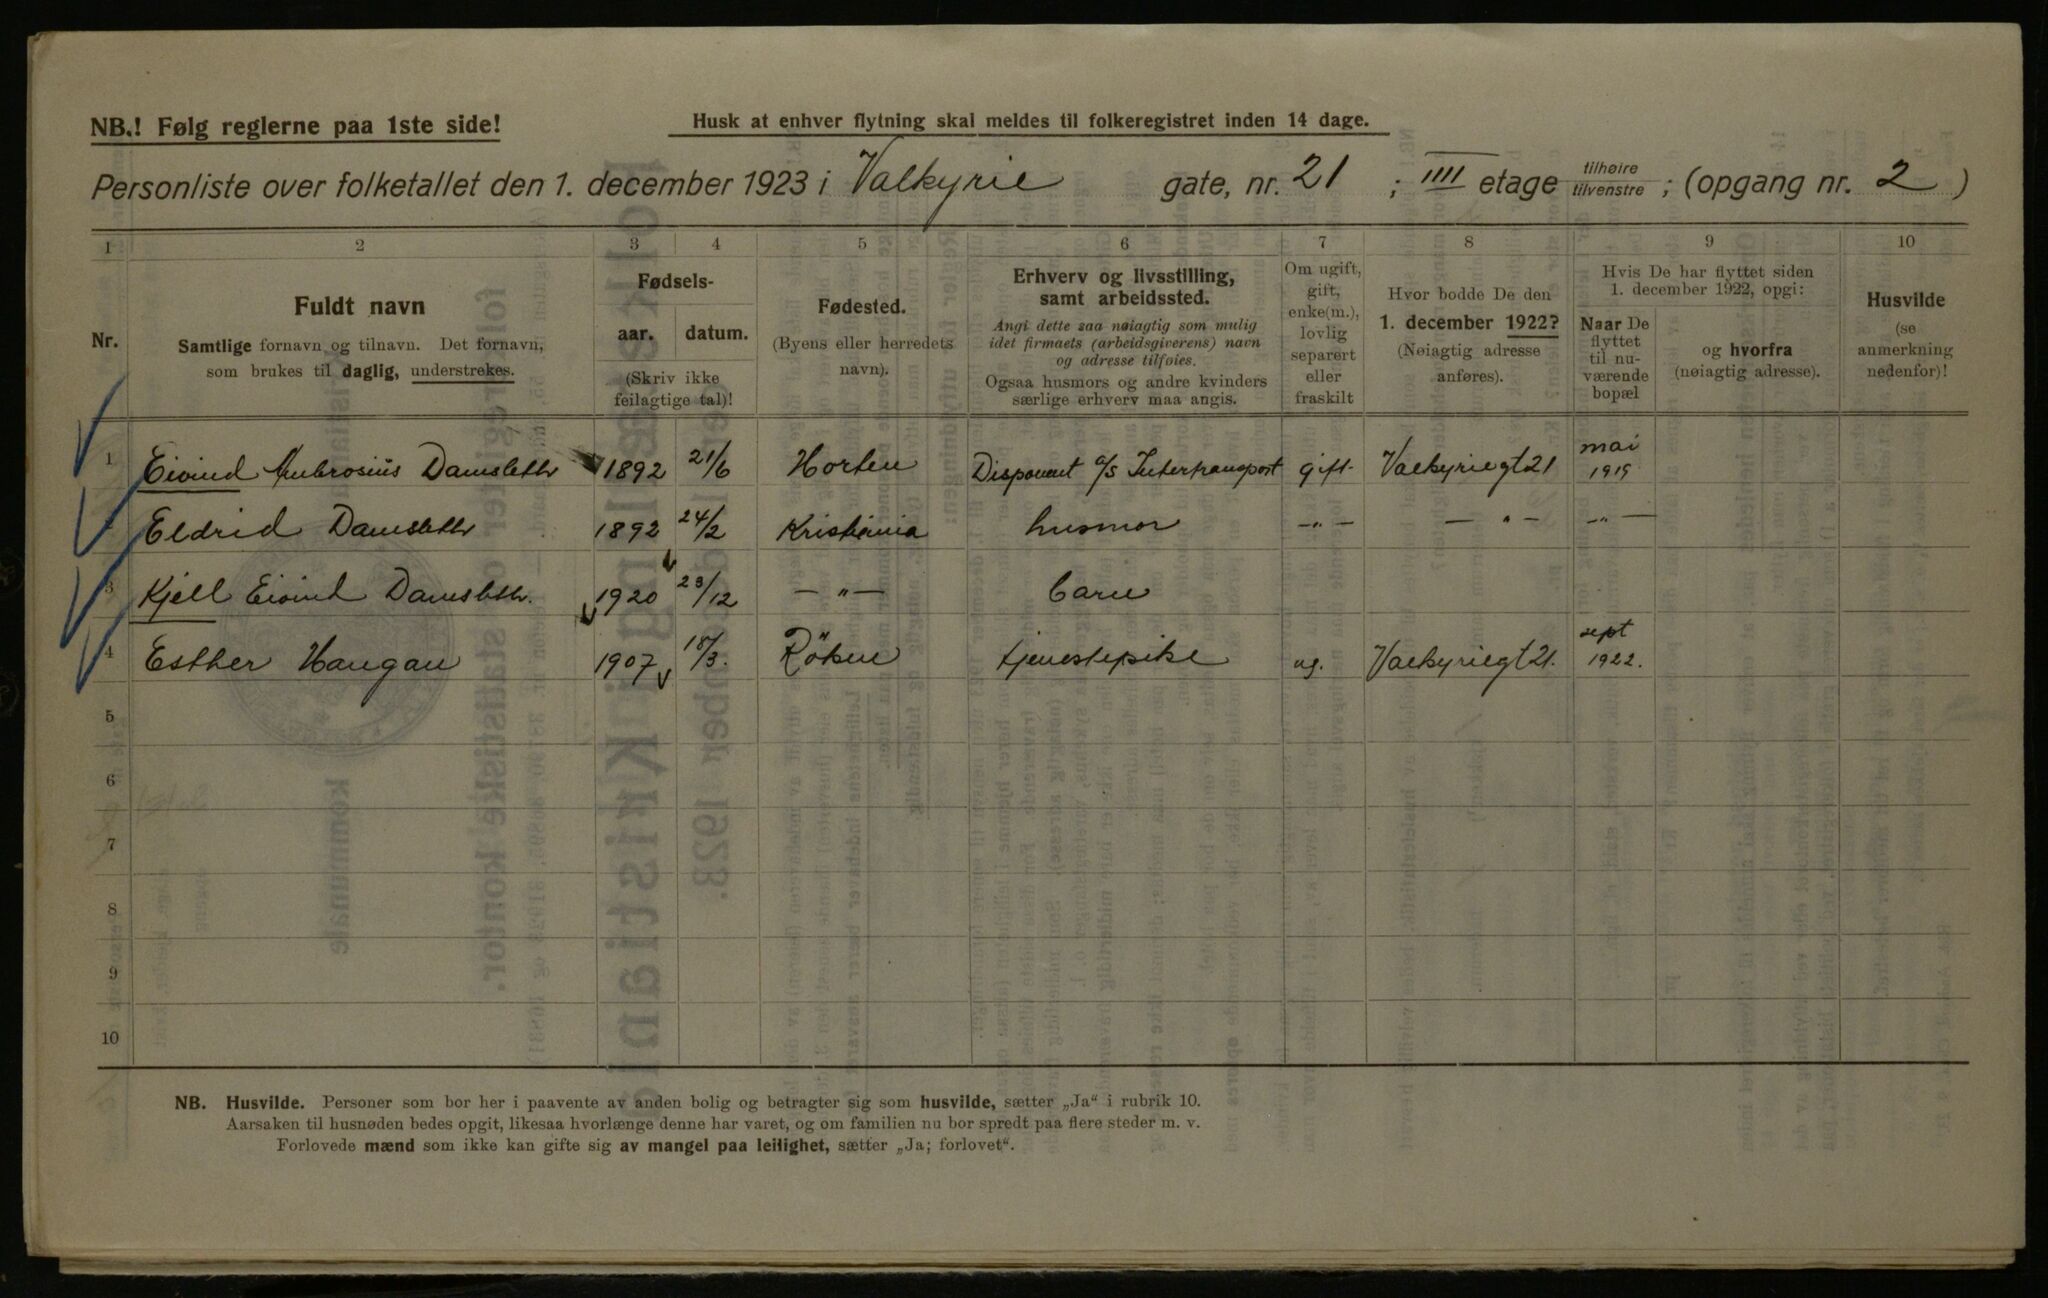 NB.! Følg reglerne paa 1ste side!
Husk at enhver flytning skal meldes til folkeregistret inden 14 dage.
Personliste over folketallet den 1. december 1923 i Valkyrie gate, nr. 21 ; IIII etage tilhøire tilvenstre ; (opgang nr. 2 )
1 2 3 4 5 6 7 8 9 10
Nr.
Fuldt navn
Samtlige fornavn og tilnavn. Det fornavn,
som brukes til daglig, understrekes.
Fødsels-
aar. datum.
(Skriv ikke
feilagtige tal)!
Fødested.
(Byens eller herredets
navn).
Erhverv og livsstilling,
samt arbeidssted.
Angi dette saa nøiagtig som mulig
idet firmaets (arbeidsgiverens) navn
og adresse tilføies.
Ogsaa husmors og andre kvinders
særlige erhverv maa angis.
Om ugift,
gift,
enke(m.),
lovlig
separert
eller
fraskilt
Hvor bodde De den
1. december 1922?
(Nøiagtig adresse
anføres).
Hvis De har flyttet siden
1. december 1922, opgi:
Naar De
flyttet
til nu-
værende
bopæl
og hvorfra
(nøiagtig adresse).
Husvilde
(se
anmerkning
nedenfor)!
1 Eivind Ambrosius Damsleth 1892 21/6 Horten Disponent a/s Intertransport gift Valkyriegt 21 mai 1919
2 Eldrid Damsleth 1892 24/2 Kristiania husmor —„— —„— —„—
3 Kjell Eivind Damsleth. 1920 23/12 —„— barn
4 Esther Haugan 1907 18/3. Röken tjenestepike ug. Valkyriegt 21. sept 1922.
5
6
7
8
9
10
NB. Husvilde. Personer som bor her i paavente av anden bolig og betragter sig som husvilde, sætter „Ja“ i rubrik 10.
Aarsaken til husnøden bedes opgit, likesaa hvorlænge denne har varet, og om familien nu bor spredt paa flere steder m. v.
Forlovede mænd som ikke kan gifte sig av mangel paa leilighet, sætter „Ja; forlovet“.